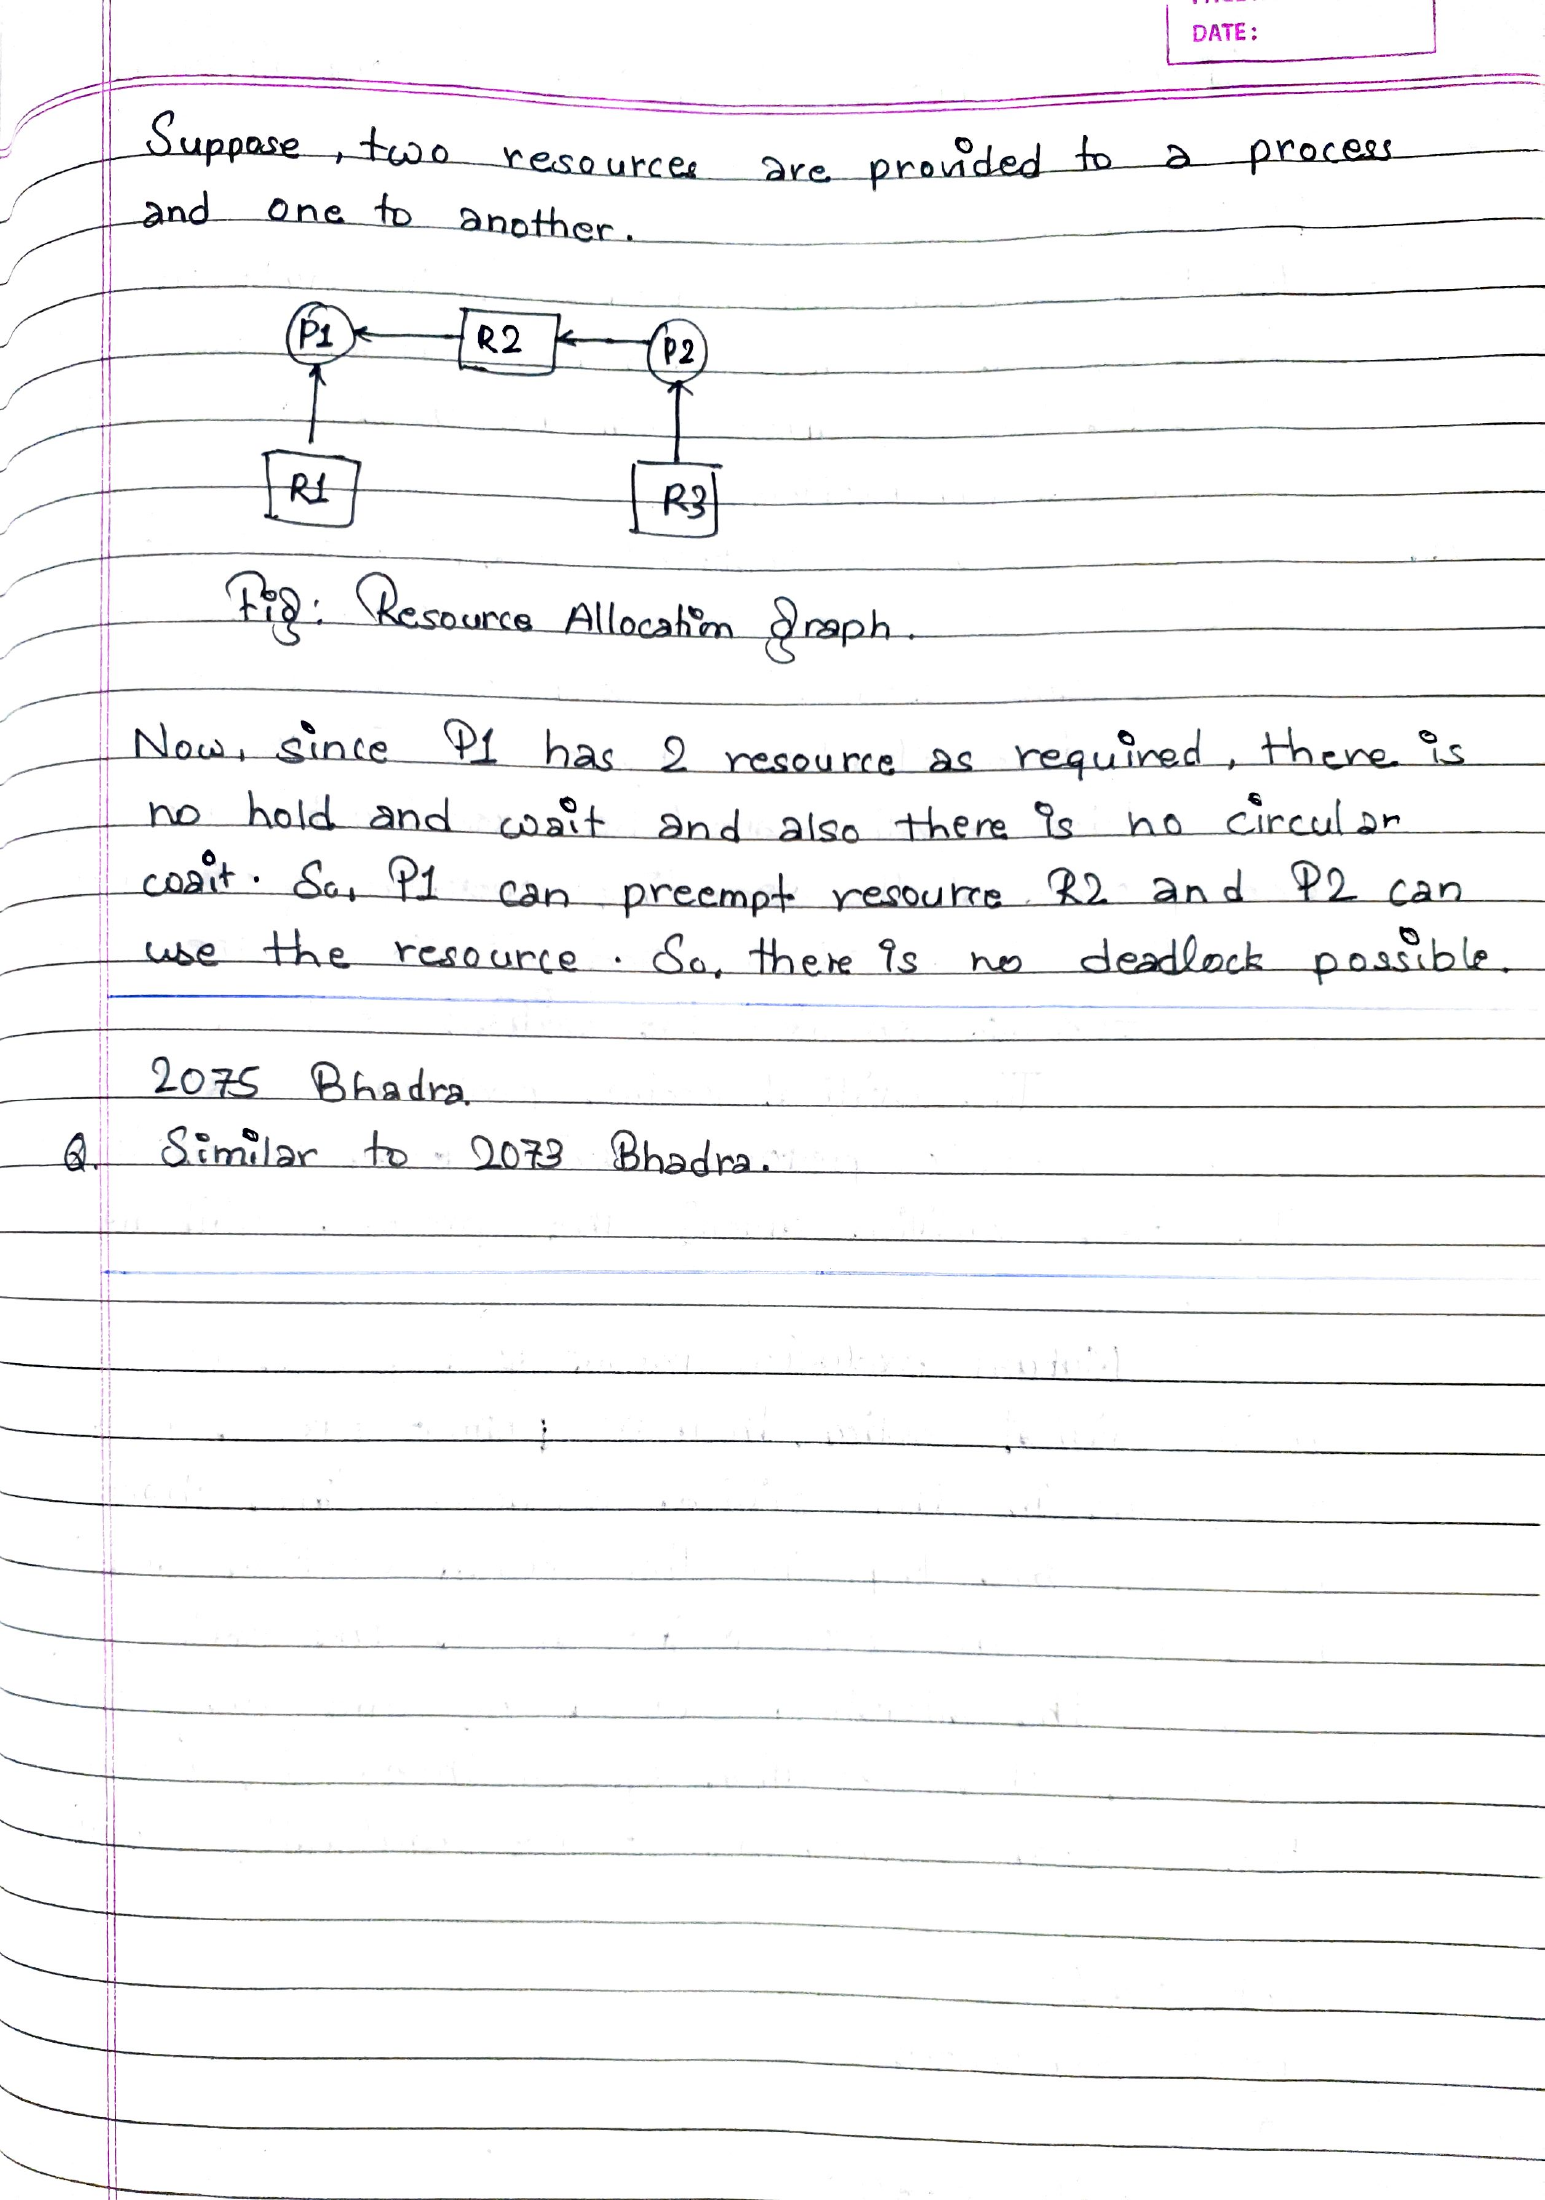 DATE:
Suppose, two resources are provided to a process
and one to another.
P1 R2 P2
R1 R3
Fig: Resource Allocation graph.
Now, since P1 has 2 resource as required, there is
no hold and wait and also there is no circular
wait. So, P1 can preempt resource R2 and P2 can
use the resource. So, there is no deadlock possible.
2075 Bhadra.
Q. Similar to 2073 Bhadra.